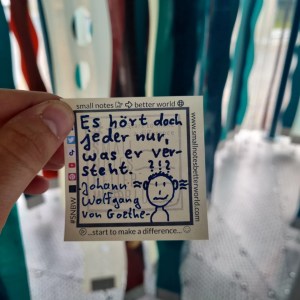 small notes ➪ better world
Es hört doch
jeder nur,
was er ver-
steht. ? ! ?
Johann
Wolfgang
von Goethe-
...start to make a difference...
www.smallnotesbetterworld.com
#SNBW